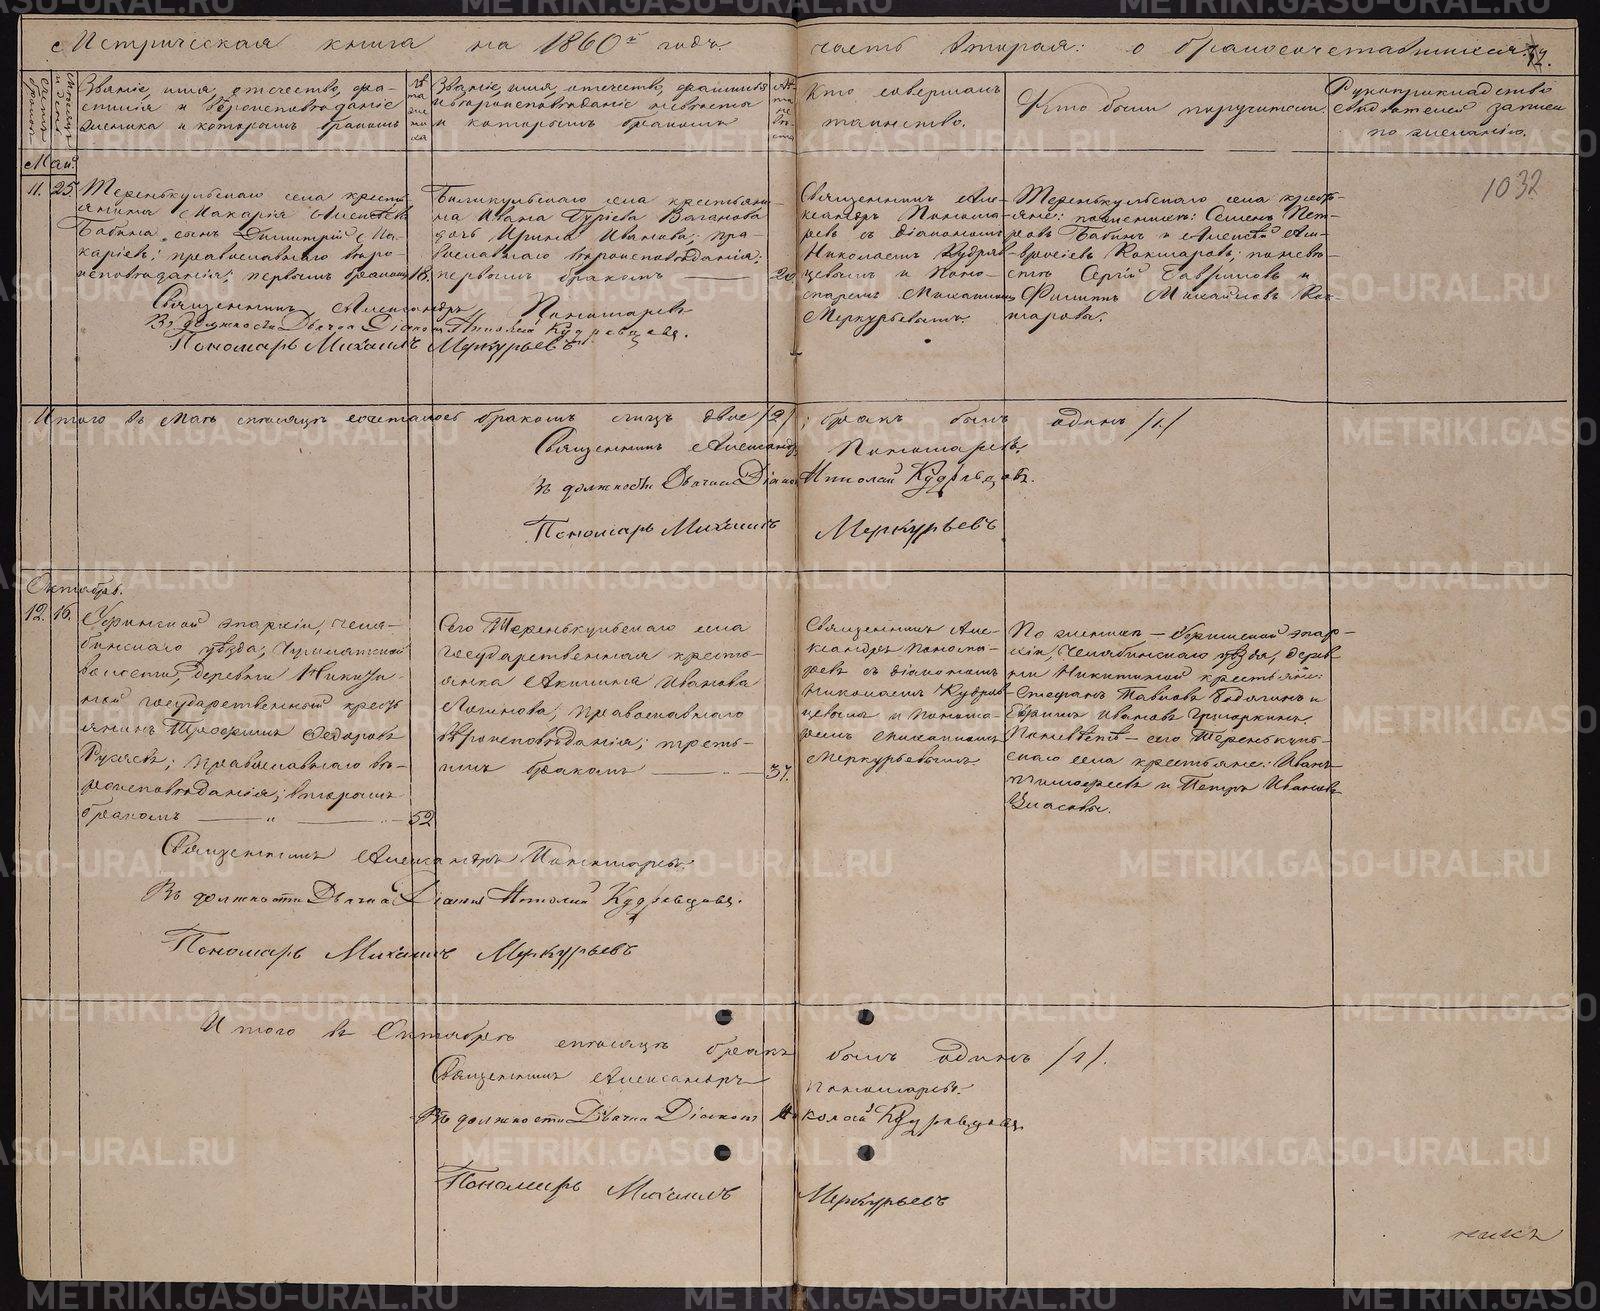 Метрическая книга на 1860й годъ.
часть вторая: о бракосочетавшихся.
12.
Звание, имя, отчество, фа-
милия и вероисповѣданіе
жениха и которымъ бракомъ
Лѣта жениха
Званіе, имя, отчество, фамилія
и вѣроисповѣданіе невѣсты
и которымъ бракомъ
Кто совершалъ
таинство.
Кто были поручители.
Рукоприкладство
свидѣтелей записи
по желанію.
Май
11. 25.
Теренькульскаго села кресть-
янина Макарія Алексѣева
Бабина сынъ Димитрій Ма-
каріевъ; православнаго вѣро-
исповѣданія; первымъ бракомъ
18.
Биликульскаго села крестьяни-
на Ивана Гуріева Ваганова
дочь Ирина Иванова; пра-
вославнаго вѣроисповѣданія;
первымъ бракомъ
20
Священникъ Але-
ксандръ Понома-
ревъ съ діакономъ
Николаемъ Кудряв-
цевымъ и Поно-
маремъ Михаиломъ
Меркурьевымъ.
Теренькульскаго села кресть-
яне: по женихѣ: Семенъ Пет-
ровъ Бабинъ и Алексѣй Ам-
вросіевъ Кокшаровъ; по невѣ-
стѣ Сергій Гавриловъ и
Филиппъ Михайловъ Кок-
шаровы.
1032
Священникъ Александръ Пономаревъ
Въ должности Дьячка Діаконъ Николай Кудрявцевъ.
Пономарь Михаилъ Меркурьевъ
Итого въ Маѣ мѣсяцѣ сочеталось бракомъ лицъ двое /2/; бракъ былъ одинъ /1/
Священникъ Александръ Пономаревъ.
Въ должности Дьячка Діаконъ Николай Кудрявцевъ.
Пономарь Михаилъ Меркурьевъ
Октябрь.
12. 16.
Уфимской епархіи, Челя-
бинскаго уѣзда,
волости, деревни Никити-
ной государственный кресть-
янинъ Трофимъ Федоровъ
православнаго вѣ-
роисповѣданія; вторымъ
бракомъ
52
Сего Теренькульскаго села
государственная кресть-
янка Акилина Иванова
Логинова; православнаго
вѣроисповѣданія; треть-
имъ бракомъ
37.
Священникъ Але-
ксандръ Понома-
ревъ съ діакономъ
Николаемъ Кудряв-
цевымъ и Понома-
ремъ Михаиломъ
Меркурьевымъ.
По женихѣ — Уфимской епар-
хіи, Челябинскаго уѣзда, дерев-
ни Никитиной крестьяне:
Стефанъ Павловъ и
Ефимъ Ивановъ Григоркинъ.
По невѣстѣ — сего Теренькуль-
скаго села крестьяне: Иванъ
Тимофеевъ и Петръ Ивановъ
Власовы.
Священникъ Александръ Пономаревъ.
Въ должности Дьячка Діаконъ Николай Кудрявцевъ.
Пономарь Михаилъ Меркурьевъ
Итого въ Октябрѣ мѣсяцѣ бракъ былъ одинъ /1/.
Священникъ Александръ Пономаревъ.
Въ должности Дьячка Діаконъ Николай Кудрявцевъ
Пономарь Михаилъ Меркурьевъ
METRIKI.GASO-URAL.RU